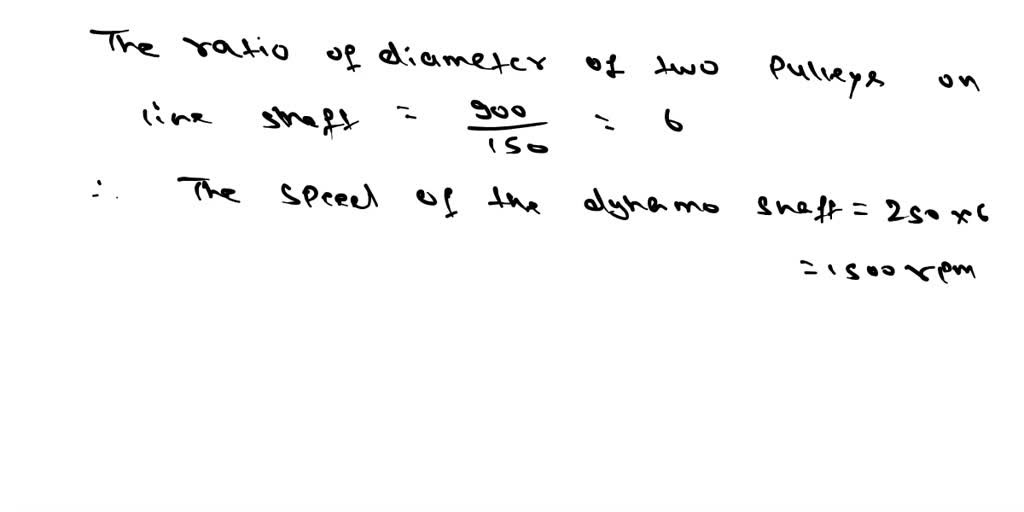 The ratio of diameter of two pulleys on
line shaft = 900/150 = 6
∴ The speed of the dynamo shaft = 250 × 6
= 1500 rpm